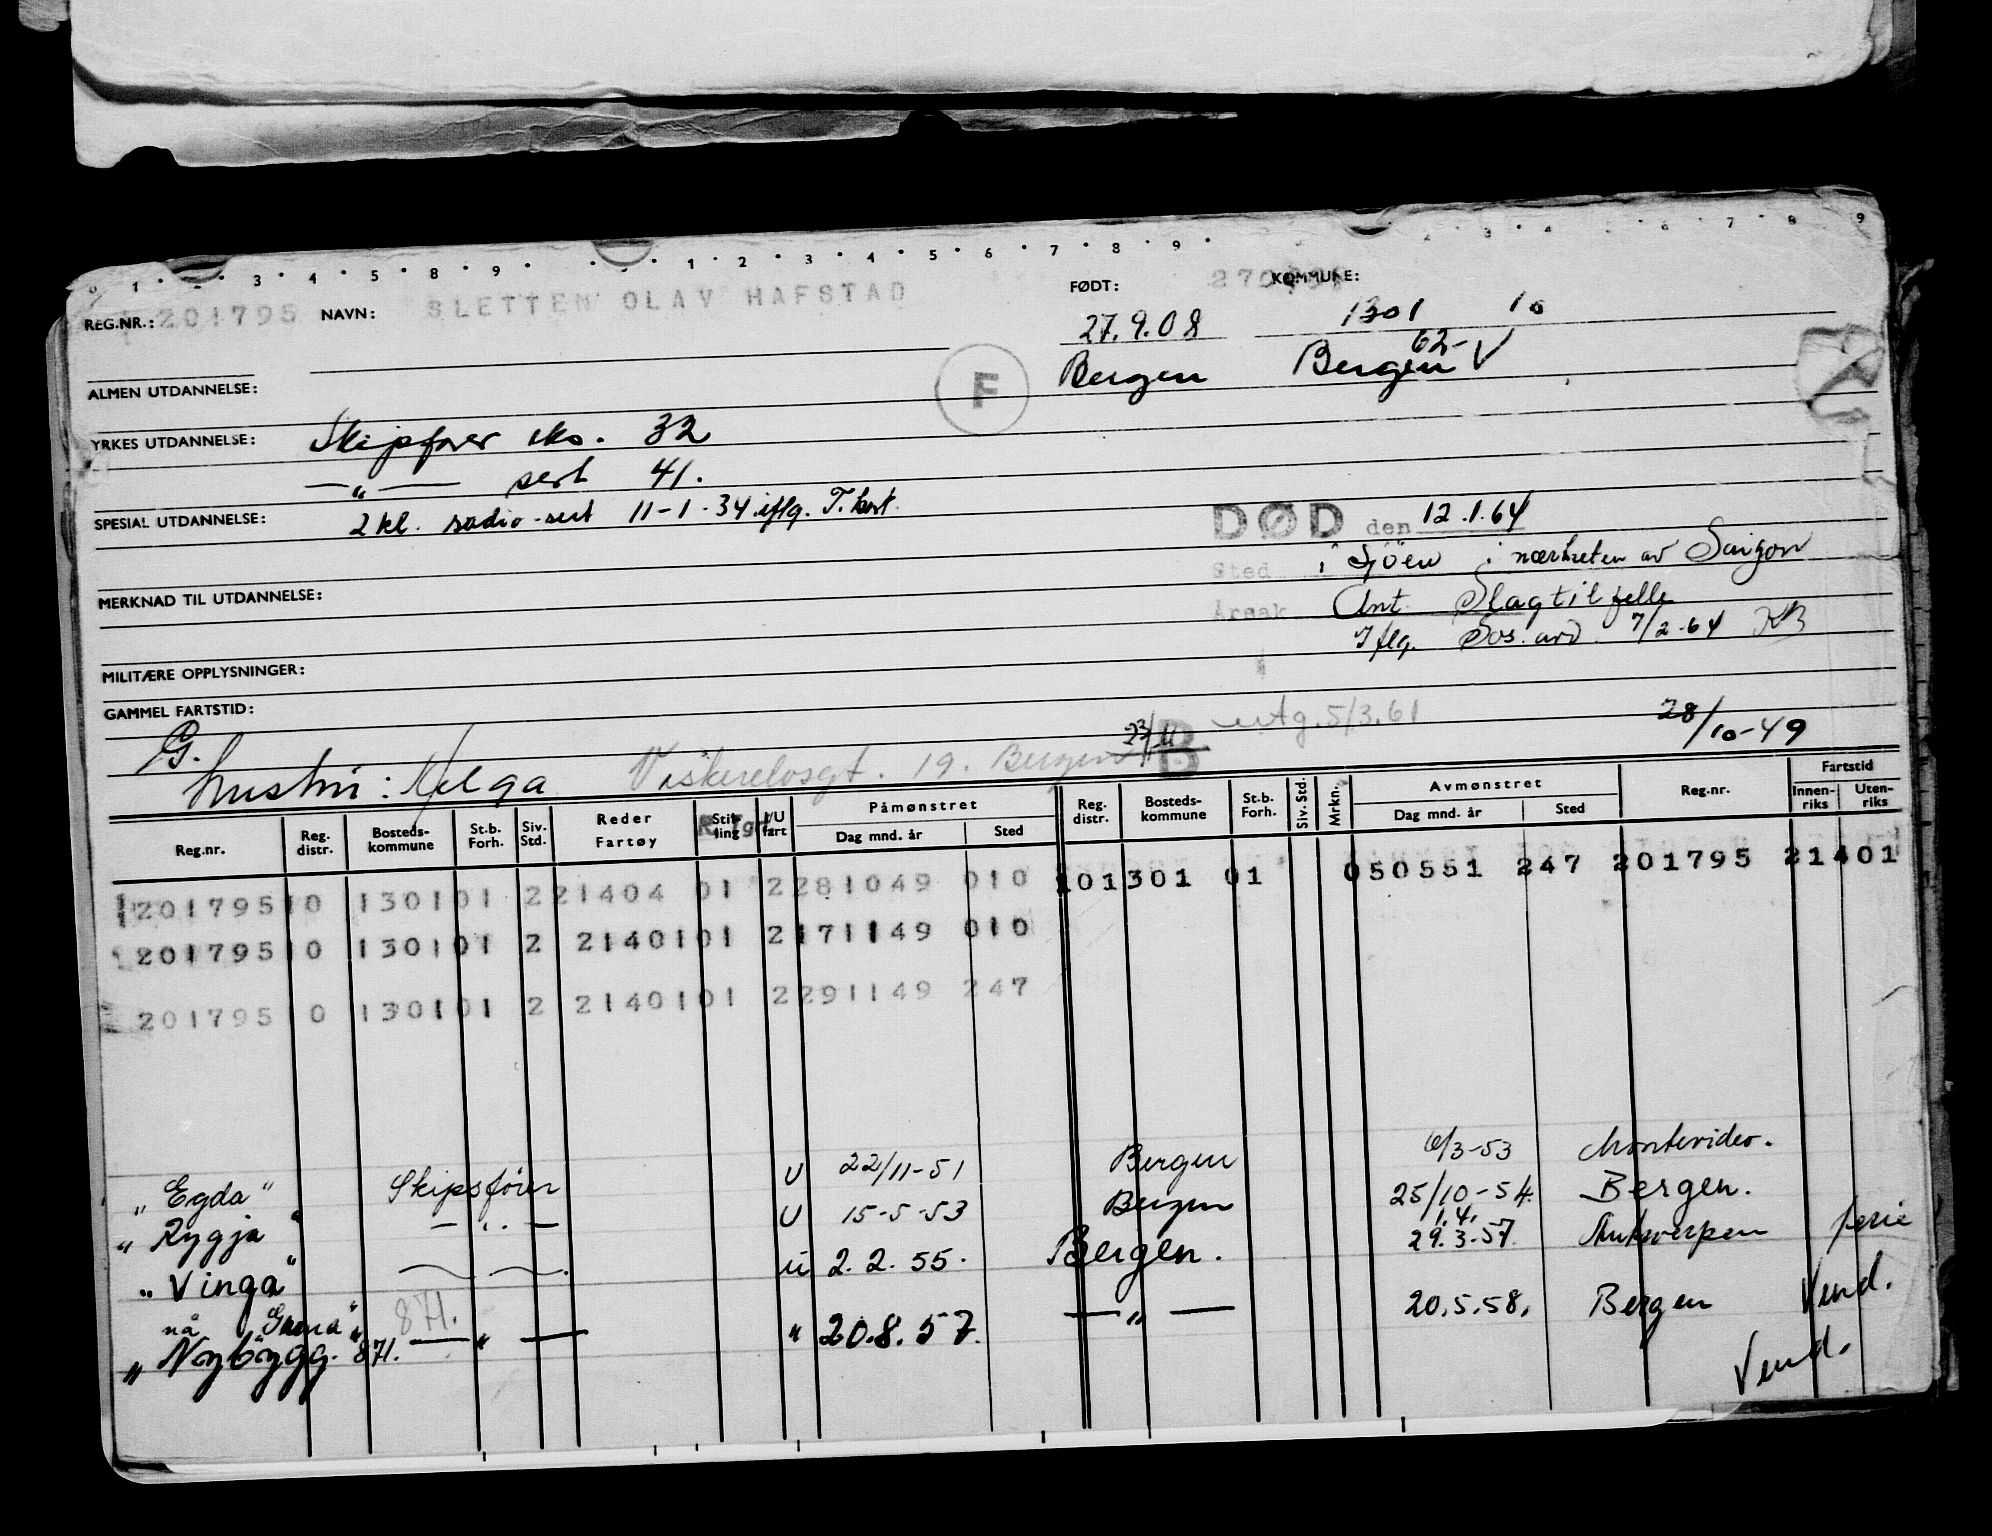 0 1 2 3 4 5 8 9 1 2 3 4 5 6 7 8 9 2 3 4 6 7 8 9
REG.NR.: 201795 NAVN: SLETTEN OLAV HAFSTAD FØDT: KOMMUNE:
27.9.08 1301 10
62-
ALMEN UTDANNELSE: F Bergen Bergen V
YRKES UTDANNELSE: Skipsfører eks. 32
—"— sert 41.
SPESIAL UTDANNELSE: 2 kl. radio-sert 11-1-34 iflg. T. kort. DØD den 12.1.64
Sted i Sjöen i nærheten av Saigon
MERKNAD TIL UTDANNELSE: Årsak Ant. Slagtilfelle
Iflg. Sos. avd. 7/2-64 KB
MILITÆRE OPPLYSNINGER:
GAMMEL FARTSTID: utg. 5/3.61 28/10-49
G. 23/11 B
hustru: Helga 19. Bergen
Reg.nr. Reg. distr. Bosteds- kommune St.b. Forh. Siv. Std. Reder Fartøy Stil- ling I/U fart Påmønstret Dag mnd. år Sted Reg. distr. Bosteds- kommune St.b. Forh. Siv. Std. Mrkn. Avmønstret Dag mnd. år Sted Reg.nr. Fartstid Innen- riks Uten- riks
201795 10 1301 01 2 21404 01 2 281049 010 101301 01 050551 247 201795 21401
201795 10 1301 01 2 21401 01 2 171149 010
201795 10 1301 01 2 21401 01 2 291149 247
"Egda" Skipsfører U 22/11-51 Bergen 6/3-53 Montevideo.
"Rygja" —"— U 15-5-53 Bergen 25/10-54. Bergen.
1.4.
"Vinga" —"— U 2.2.55. Bergen. 29.3.57. Antwerpen ferie
nå 871. Vend.
"Nybygg. 871. —"— " 20.8.57. —"— 20.5.58. Bergen
Vend.